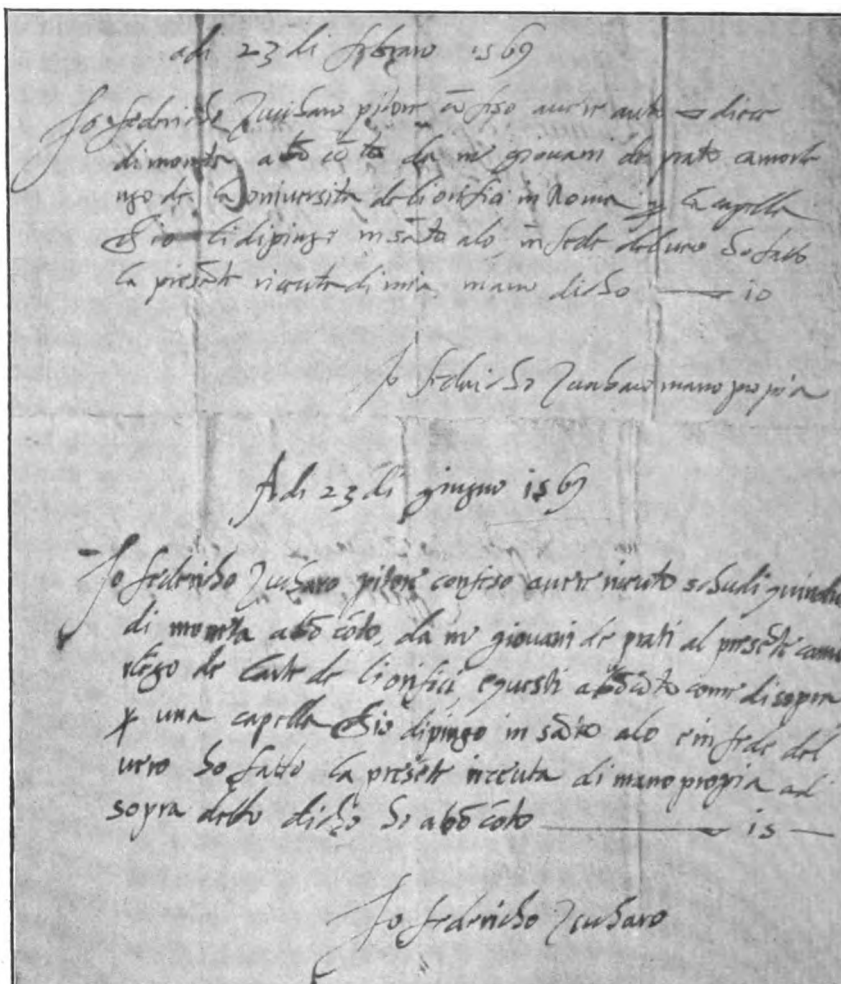 adi 23 di febraro 1569
Io federicho Zucharo pitore cō feso avere auto ▽ diece
di moneta a bō cō to da mr giovani de prato camorlē
ngo de la oniversita de li orifici in Roma p la capella
ch io li dipingo in sāto alo in fede del uero ho fatto
la presēte riceuta di mia mano dicho — 10
Io federicho Zucharo mano propia
Adi 23 di giugno 1569
Io federicho Zucharo pitore confeso avere riceuto schudi quindici
di moneta a bō cōto da mr giovani de prati al presēte camor
lēgo de larte de li orifici e questi a bō cōto come di sopra
p una capella ch io dipingo in sāto alo e in fede del
uero ho fatto la presēte riceuta di mano propia adi
sopra detto dicho ▽ a bō cōto — 15 —
Io federicho Zucharo